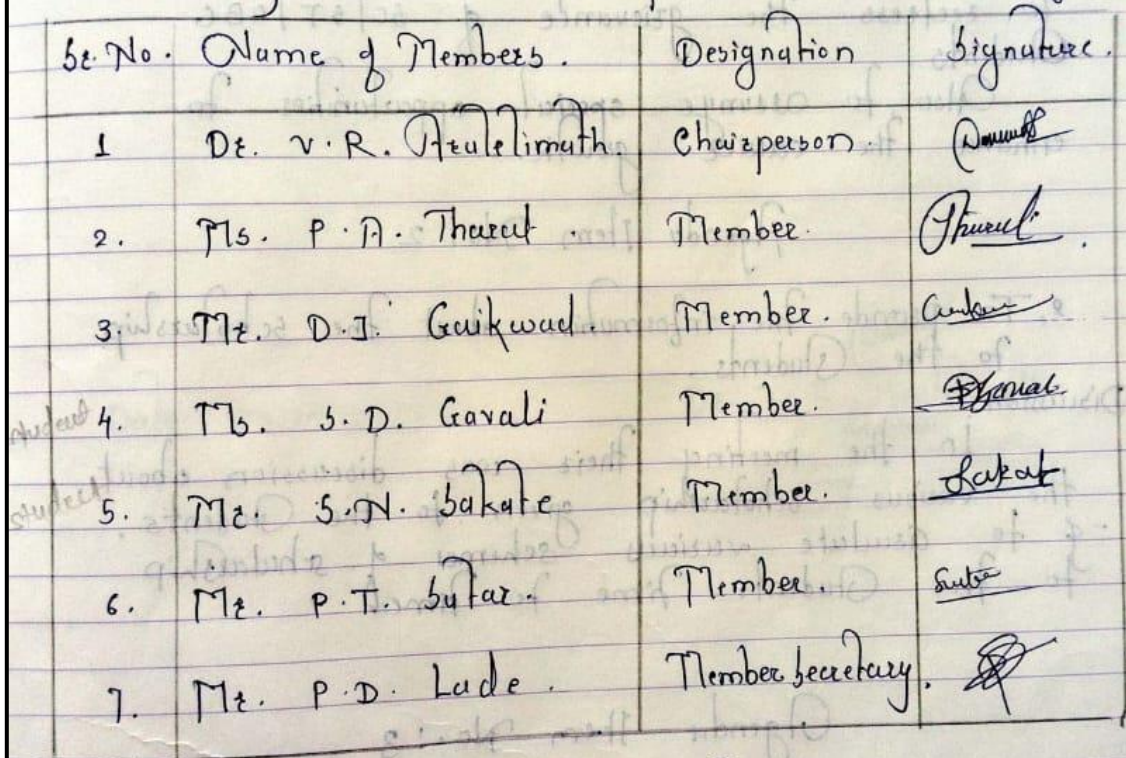 Sr. No. Name of Members. Designation Signature.
1 Dr. V. R. Aralelimath Chairperson.
2. Ms. P. A. Tharat. Member.
3. Mr. D. J. Gaikwad. Member.
student 4. Ms. S. D. Gavali Member.
student 5. Mr. S. N. Sakate Member. Sakat
6. Mr. P. T. Sutar. Member. Sutar
7. Mr. P. D. Lade. Member Secretary.